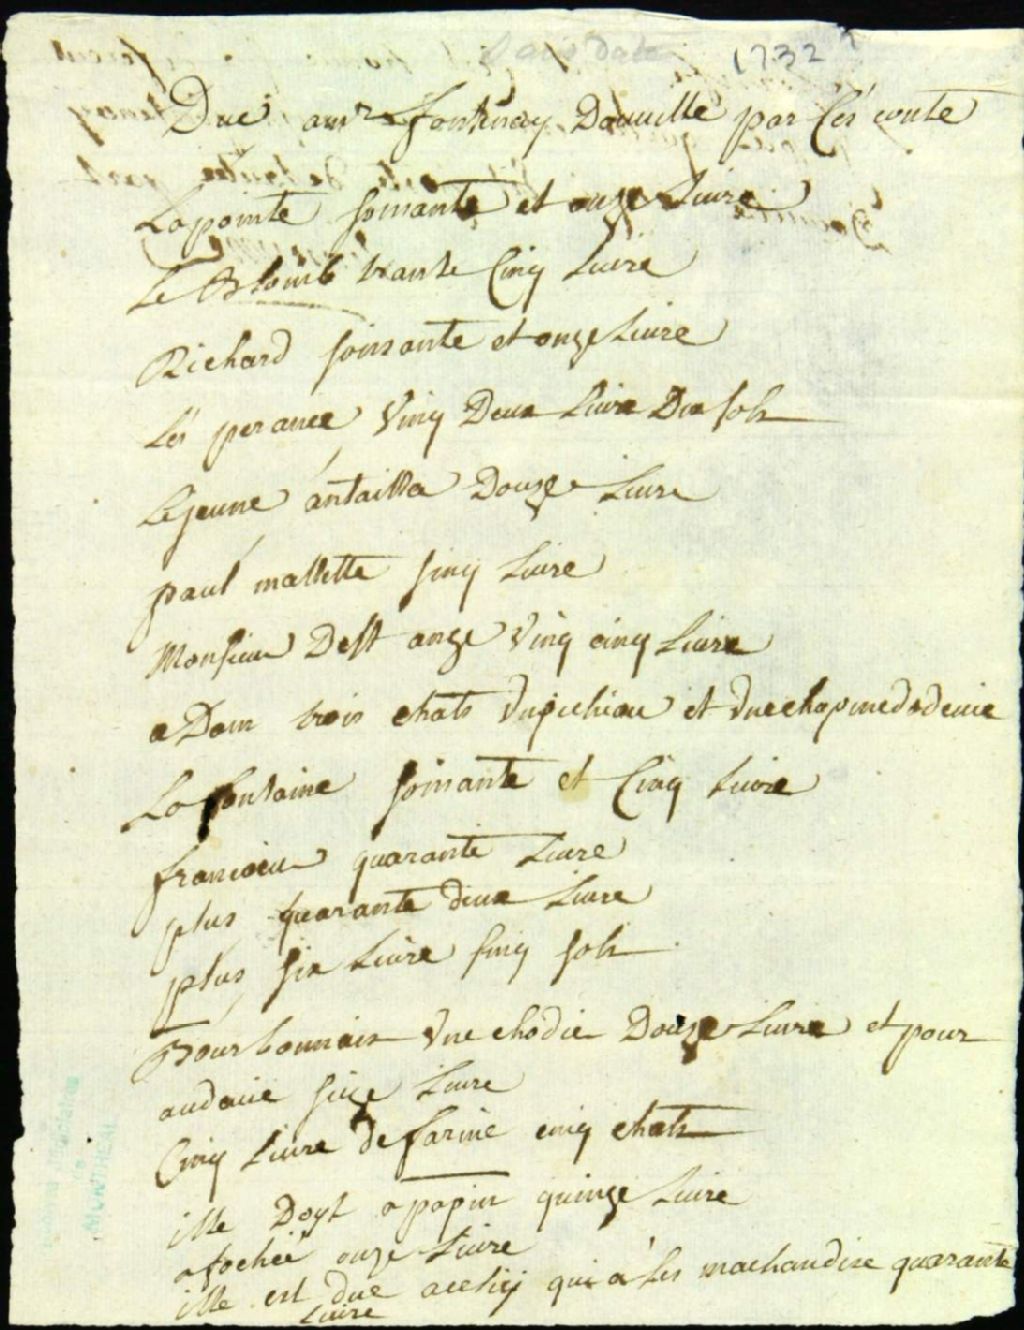 Sans date 1732 ?
Due aux Sr fontenay Douville par Ces conte
Lapointe soinante et onze Livire
Le Blomb trante Cinq Livire
Richard soinsante et onze Livire
Les perance Ving Deux Livre Dix sols
Lejeune antailla Douze Livre
paul mallette sinq Livre
Monsieur Dest ange Ving cinq Livre
a Dam trois chats et
Lafontaine soinante et Cinq Livre
francoeur quarante Livre
plus quarante deux Livre
plus six Livre sinq sols
Bourbonnais Vne chodie Douze Livre et pour
audavie size Livre
Cinq Livre de farine cinq chats
ille Doyt a papin quinze Livre
a fochée onze Livre
ille est due qui a les machandise quarante
Livre
MONTREAL